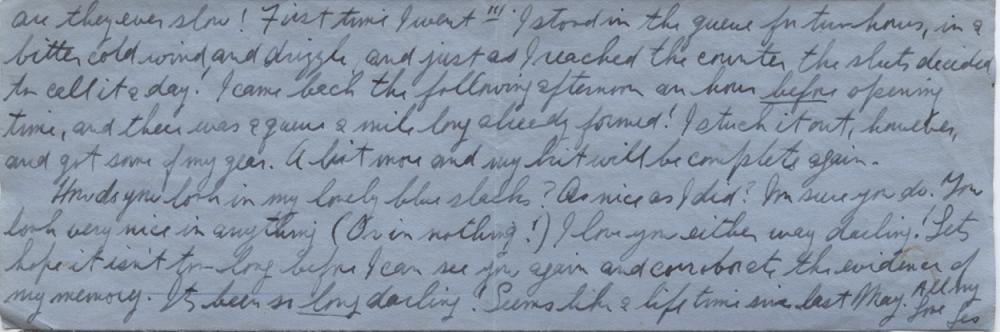 are they ever slow! First time I went I stood in the queue for two hours, in a
bitter cold wind and drizzle, and just as I reached the counter, the sluts decided
to call it a day! I came back the following afternoon an hour before opening
time, and there was a queue a mile long already formed! I stuck it out, however,
and got some of my gear. A bit more and my kit will be complete again.
How do you look in my lovely blue slacks? As nice as I did? I'm sure you do. You
look very nice in anything (Or in nothing!) I love you either way darling! Lets
hope it isn't too long before I can see you again and corroborate the evidence of
my memory. Its been so long darling! Seems like a lifetime since last May. All my
love
Les